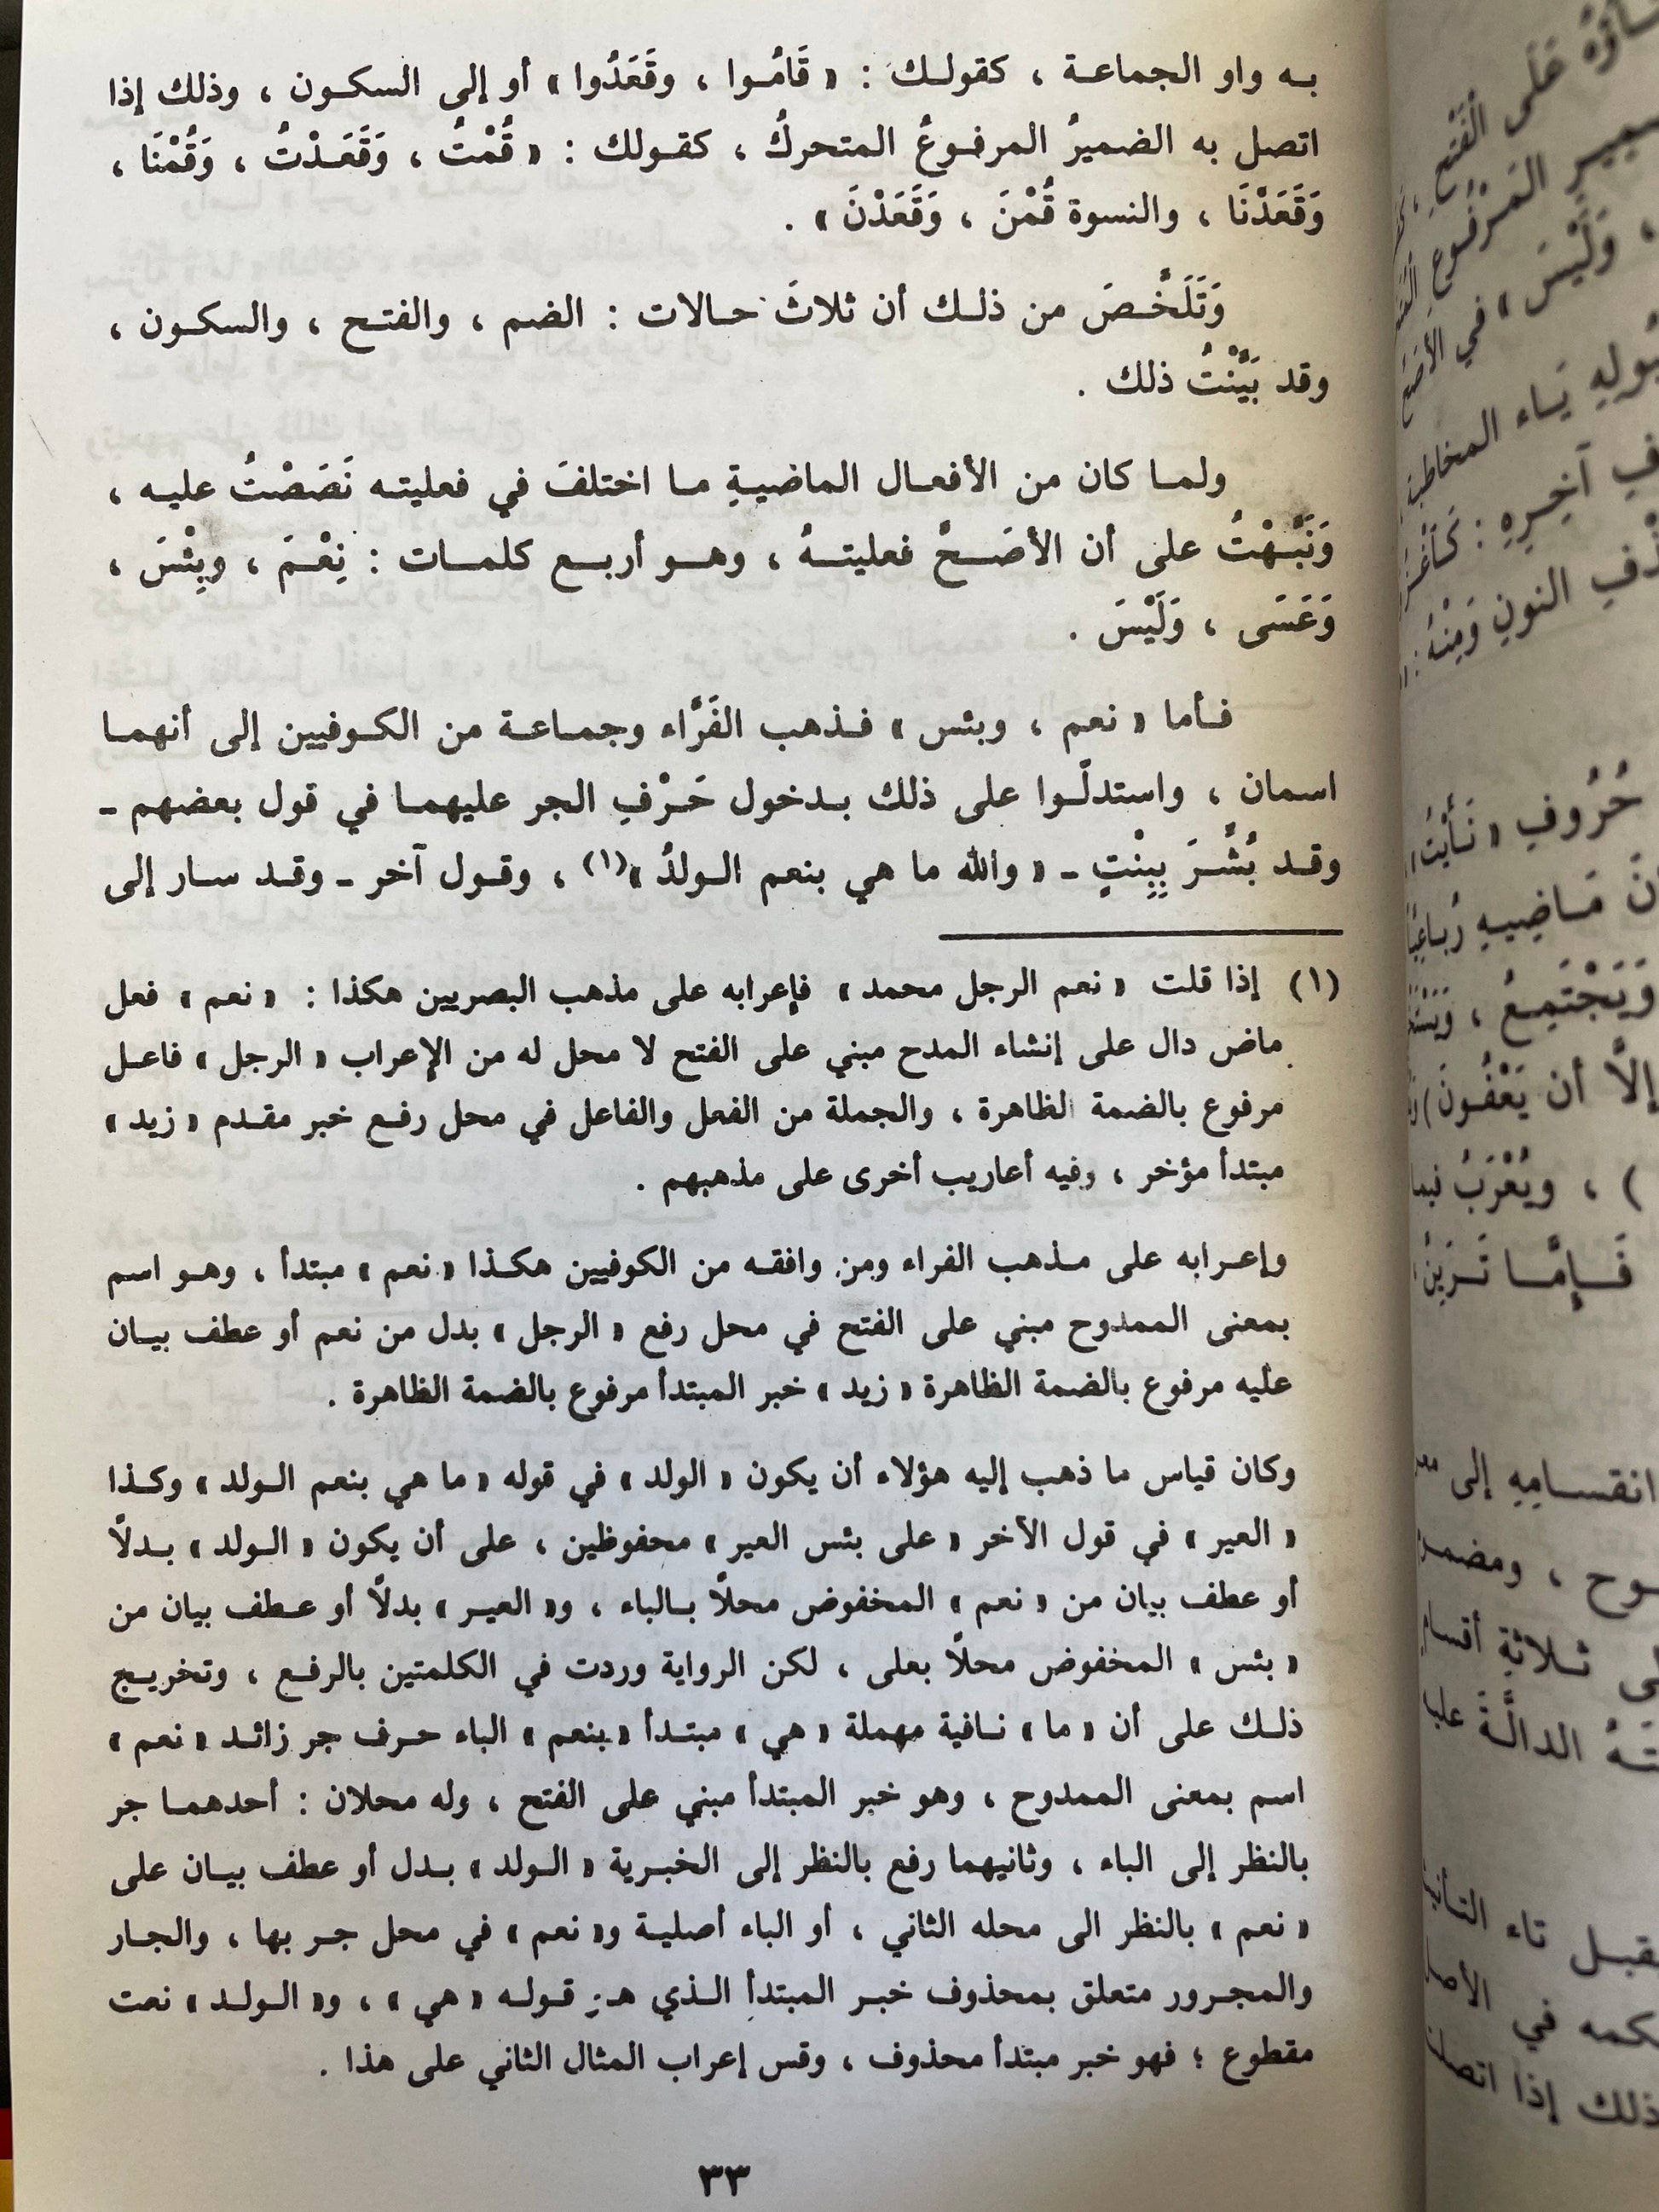 به واو الجماعة ، كقولك : « قَامُوا ، وقَعَدُوا » أو إلى السكون ، وذلك إذا
اتصل به الضميرُ المرفوعُ المتحركُ ، كقولك : « قُمْتُ ، وَقَعَدْتُ ، وَقُمْنَا ،
وَقَعَدْنَا ، والنسوة قُمْنَ ، وَقَعَدْنَ » .
وَتَلَخَّصَ من ذلك أن ثلاثَ حالات : الضم ، والفتح ، والسكون ،
وقد بَيَّنْتُ ذلك .
ولما كان من الأفعال الماضيةِ ما اختلفَ في فعليته نَصَصْتُ عليه ،
وَنَبَّهْتُ على أن الأصَحَّ فعليتهُ ، وهو أربع كلمات : نِعْمَ ، وبِئْسَ ،
وَعَسَى ، وَلَيْسَ .
فأما « نعم ، وبئس » فذهب الفَرَّاء وجماعة من الكوفيين إلى أنهما
اسمان ، واستدلّوا على ذلك بدخول حَرْفِ الجر عليهما في قول بعضهم -
وقد بُشِّرَ بِبِنْتٍ - « والله ما هي بنعم الولدُ »(١) ، وقول آخر - وقد سار إلى
(١) إذا قلت « نعم الرجل محمد » فإعرابه على مذهب البصريين هكذا : « نعم » فعل
ماض دال على إنشاء المدح مبني على الفتح لا محل له من الإعراب « الرجل » فاعل
مرفوع بالضمة الظاهرة ، والجملة من الفعل والفاعل في محل رفع خبر مقدم « زيد »
مبتدأ مؤخر ، وفيه أعاريب أخرى على مذهبهم .
وإعرابه على مذهب الفراء ومن وافقه من الكوفيين هكذا « نعم » مبتدأ ، وهو اسم
بمعنى الممدوح مبني على الفتح في محل رفع « الرجل » بدل من نعم أو عطف بيان
عليه مرفوع بالضمة الظاهرة « زيد » خبر المبتدأ مرفوع بالضمة الظاهرة .
وكان قياس ما ذهب إليه هؤلاء أن يكون « الولد » في قوله « ما هي بنعم الولد » وكذا
« العير » في قول الآخر « على بئس العير » محفوظين ، على أن يكون « الولد » بدلًا
أو عطف بيان من « نعم » المخفوض محلًا بالباء ، و« العير » بدلًا أو عطف بيان من
« بئس » المخفوض محلًا بعلى ، لكن الرواية وردت في الكلمتين بالرفع ، وتخريج
ذلك على أن « ما » نافية مهملة « هي » مبتدأ « بنعم » الباء حرف جر زائد « نعم »
اسم بمعنى الممدوح ، وهو خبر المبتدأ مبني على الفتح ، وله محلان : أحدهما جر
بالنظر إلى الباء ، وثانيهما رفع بالنظر إلى الخبرية « الولد » بدل أو عطف بيان على
« نعم » بالنظر الى محله الثاني ، أو الباء أصلية و« نعم » في محل جر بها ، والجار
والمجرور متعلق بمحذوف خبر المبتدأ الذي هو قوله « هي » ، و« الولد » نعت
مقطوع ؛ فهو خبر مبتدأ محذوف ، وقس إعراب المثال الثاني على هذا .
٣٣
عَلَى الْفَتْحِ
المَرْفُوعِ
، وَلَيْسَ » في الأصَحِّ
يَاء المخاطبة
آخِرِهِ :
النونِ وَمِنْهُ :
حُرُوفِ « نَأَيْتُ »
مَاضِيهِ رُبَاعِيًّا
وَيَجْتَمِعُ ،
إلَّا أن يَعْفُونَ )
) ، ويُعْرَبُ فيما
فَإِمَّا تَرَيِنَّ
انقسامِهِ إلى
، ومضمن
ثلاثةِ أقسام
الدالَّةَ عليه
تاء التأنيث
في الأصل
ذلك إذا اتصلت